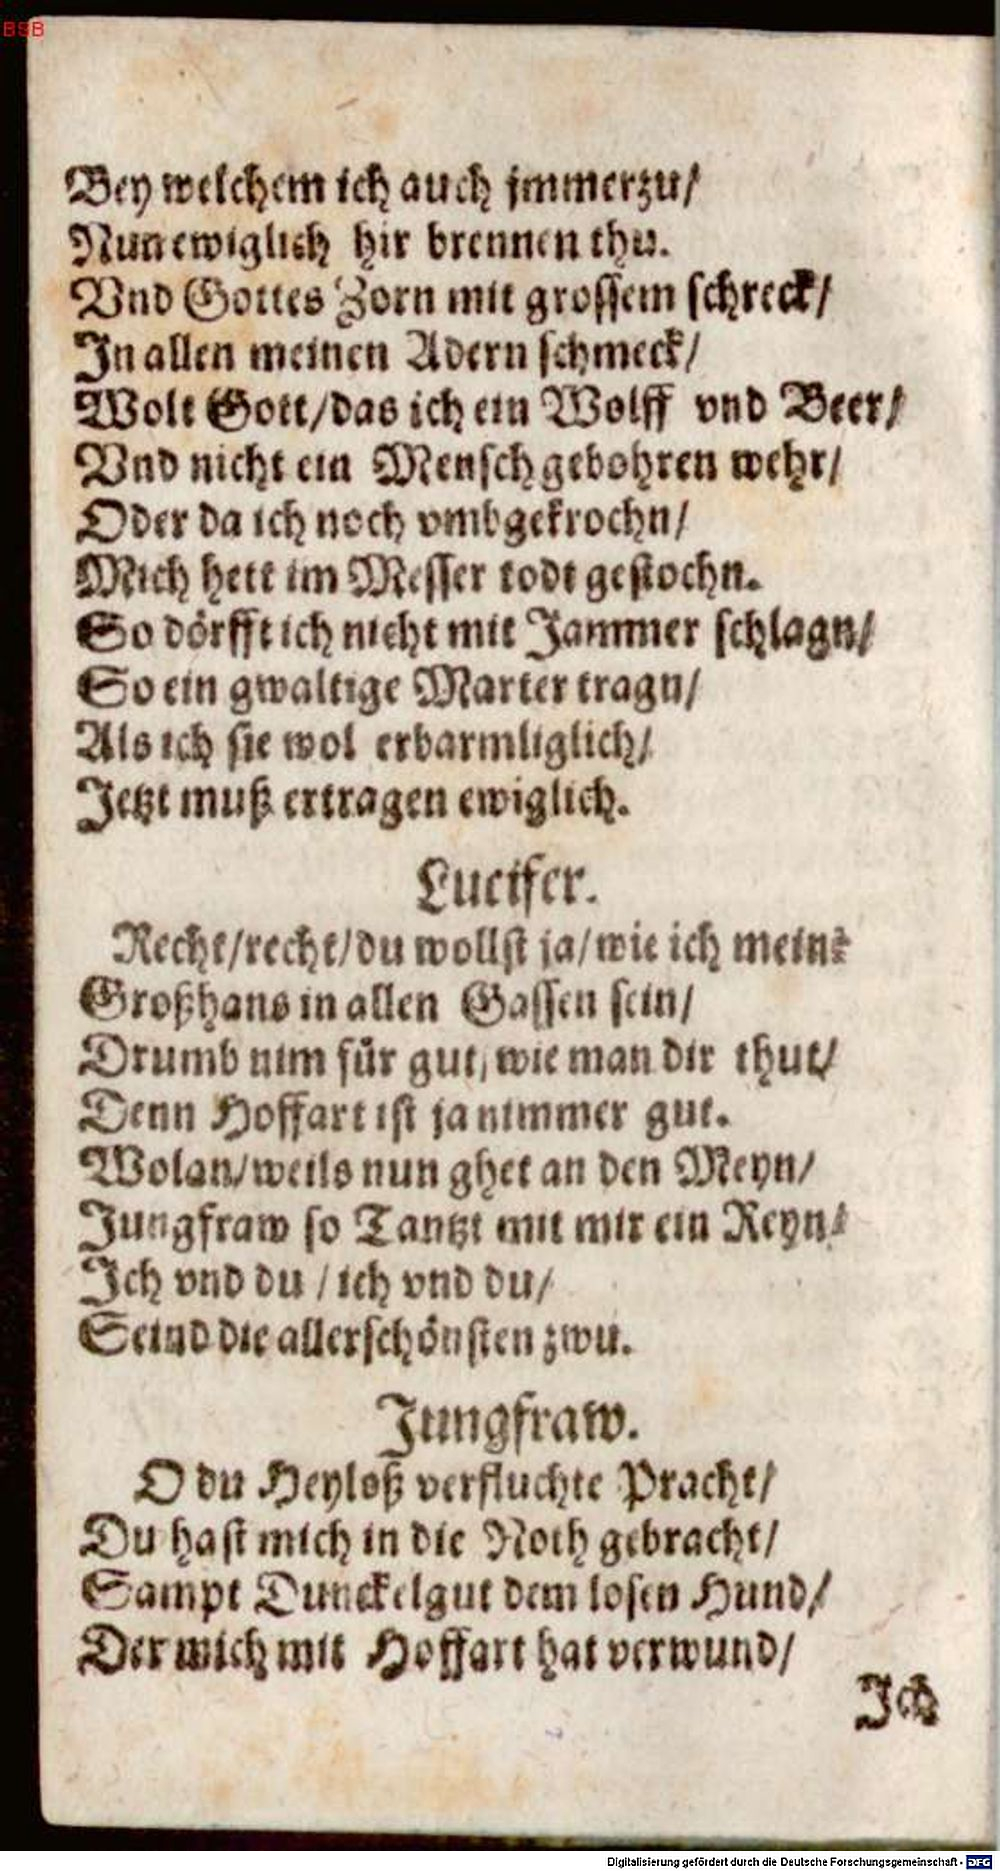 BSB
Bey welchem ich auch jmmerzu/
Nun ewiglich hir brennen thu.
Vnd Gottes Zorn mit grossem schreck/
In allen meinen Adern schmeck/
Wolt Gott/das ich ein Wolff vnd Beer/
Vnd nicht ein Mensch gebohren wehr/
Oder da ich noch vmbgekrochn/
Mich hett im Messer todt gestochn.
So dörfft ich nicht mit Jammer schlagn/
So ein gwaltige Marter tragn/
Als ich sie wol erbarmliglich/
Jetzt muß ertragen ewiglich.
Lucifer.
Recht/recht/du wollst ja/wie ich mein/
Großhans in allen Gassen sein/
Drumb nim für gut/wie man dir thut/
Denn Hoffart ist ja nimmer gut.
Wolan/weils nun ghet an den Meyn/
Jungfraw so Tantzt mit mir ein Reyn/
Ich vnd du / ich vnd du/
Seind die allerschönsten zwu.
Jungfraw.
O du Heyloß verfluchte Pracht/
Du hast mich in die Noth gebracht/
Sampt Dunckelgut dem losen Hund/
Der mich mit Hoffart hat verwund/
Ich
Digitalisierung gefördert durch die Deutsche Forschungsgemeinschaft - DFG